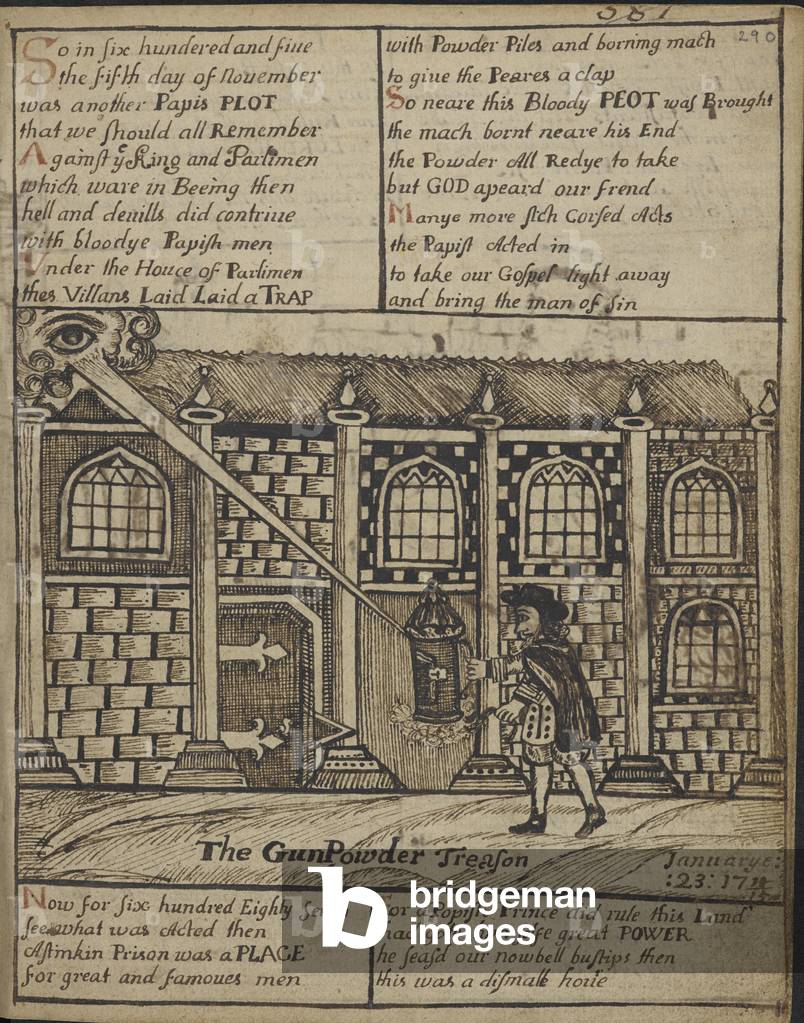 387
290
So in six hundered and fiue
the fifth day of November
was another Papis PLOT
that we should all Remember
Against ye King and Parlimen
which ware in Beeing then
hell and deuills did contriue
with bloodye Papish men
Vnder the House of Parlimen
thes Villans Laid Laid a TRAP
with Powder Piles and borning mach
to giue the Peares a clap
So neare this Bloody PEOT was Brought
the mach bornt neare his End
the Powder All Redye to take
but GOD apeard our frend
Manye more sich Corsed Acts
the Papist Acted in
to take our Gospel light away
and bring the man of sin
The GunPowder Treason
Januarye:
:23: 17
Now for six hundred Eighty
see what was Acted then
Astinkin Prison was a PLACE
for great and famoues men
for a Popish Prince did rule this Land
great POWER
he seasd our nowbell bustips then
this was a dismall houre
bridgeman
images